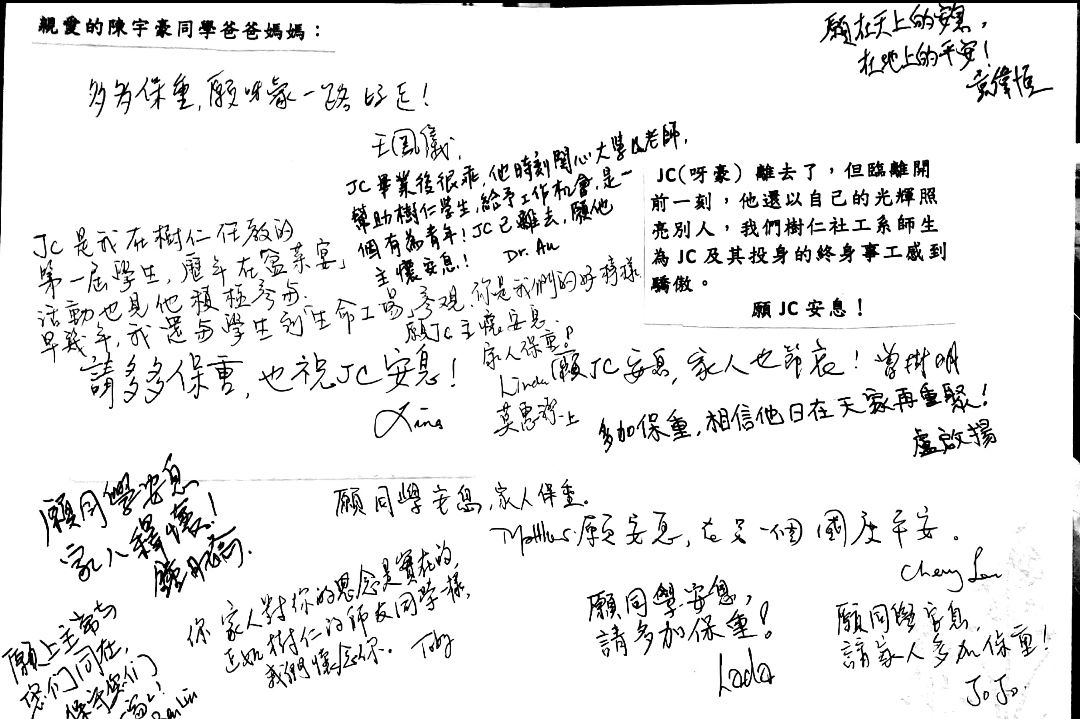 親愛的陳宇豪同學爸爸媽媽：
願在天上的安息，
在地上的平安！
袁偉恒
多多保重，願呀豪一路好走！
王鳳儀
JC 畢業後很乖，他時刻關心大學及老師，
幫助樹仁學生，給予工作机會，是一
個有為青年！JC已離去，願他
主懷安息！
Dr. Au
JC(呀豪) 離去了，但臨離開
前一刻，他還以自己的光輝照
亮別人，我們樹仁社工系師生
為 JC 及其投身的終身事工感到
驕傲。
願 JC 安息！
JC 是我在樹仁任教的
第一屆學生，歷年在「盆菜宴」
活動也見他積極參與．
早幾年，我還與學生到「生命工場」參觀．
請多多保重，也祝JC安息！
Lina
你是我們的好榜樣
願JC主懷安息．
家人保重！
Linda
莫惠
上
願JC安息，家人也節哀！曾樹明
多加保重，相信他日在天家再重聚！
盧啟揚
願同學安息
家人釋懷！
願同學安息，家人保重。
Matthew
願安息，在另一個國度平安．
Cheng
你家人對你的思念是實在的
正如樹仁的師友同學一樣，
我們懷念你． Toby
願同學安息，
請多加保重！
Lada
願同學安息，
請家人多加保重！
JoJo
願上主常與
您們同在，
保守您們